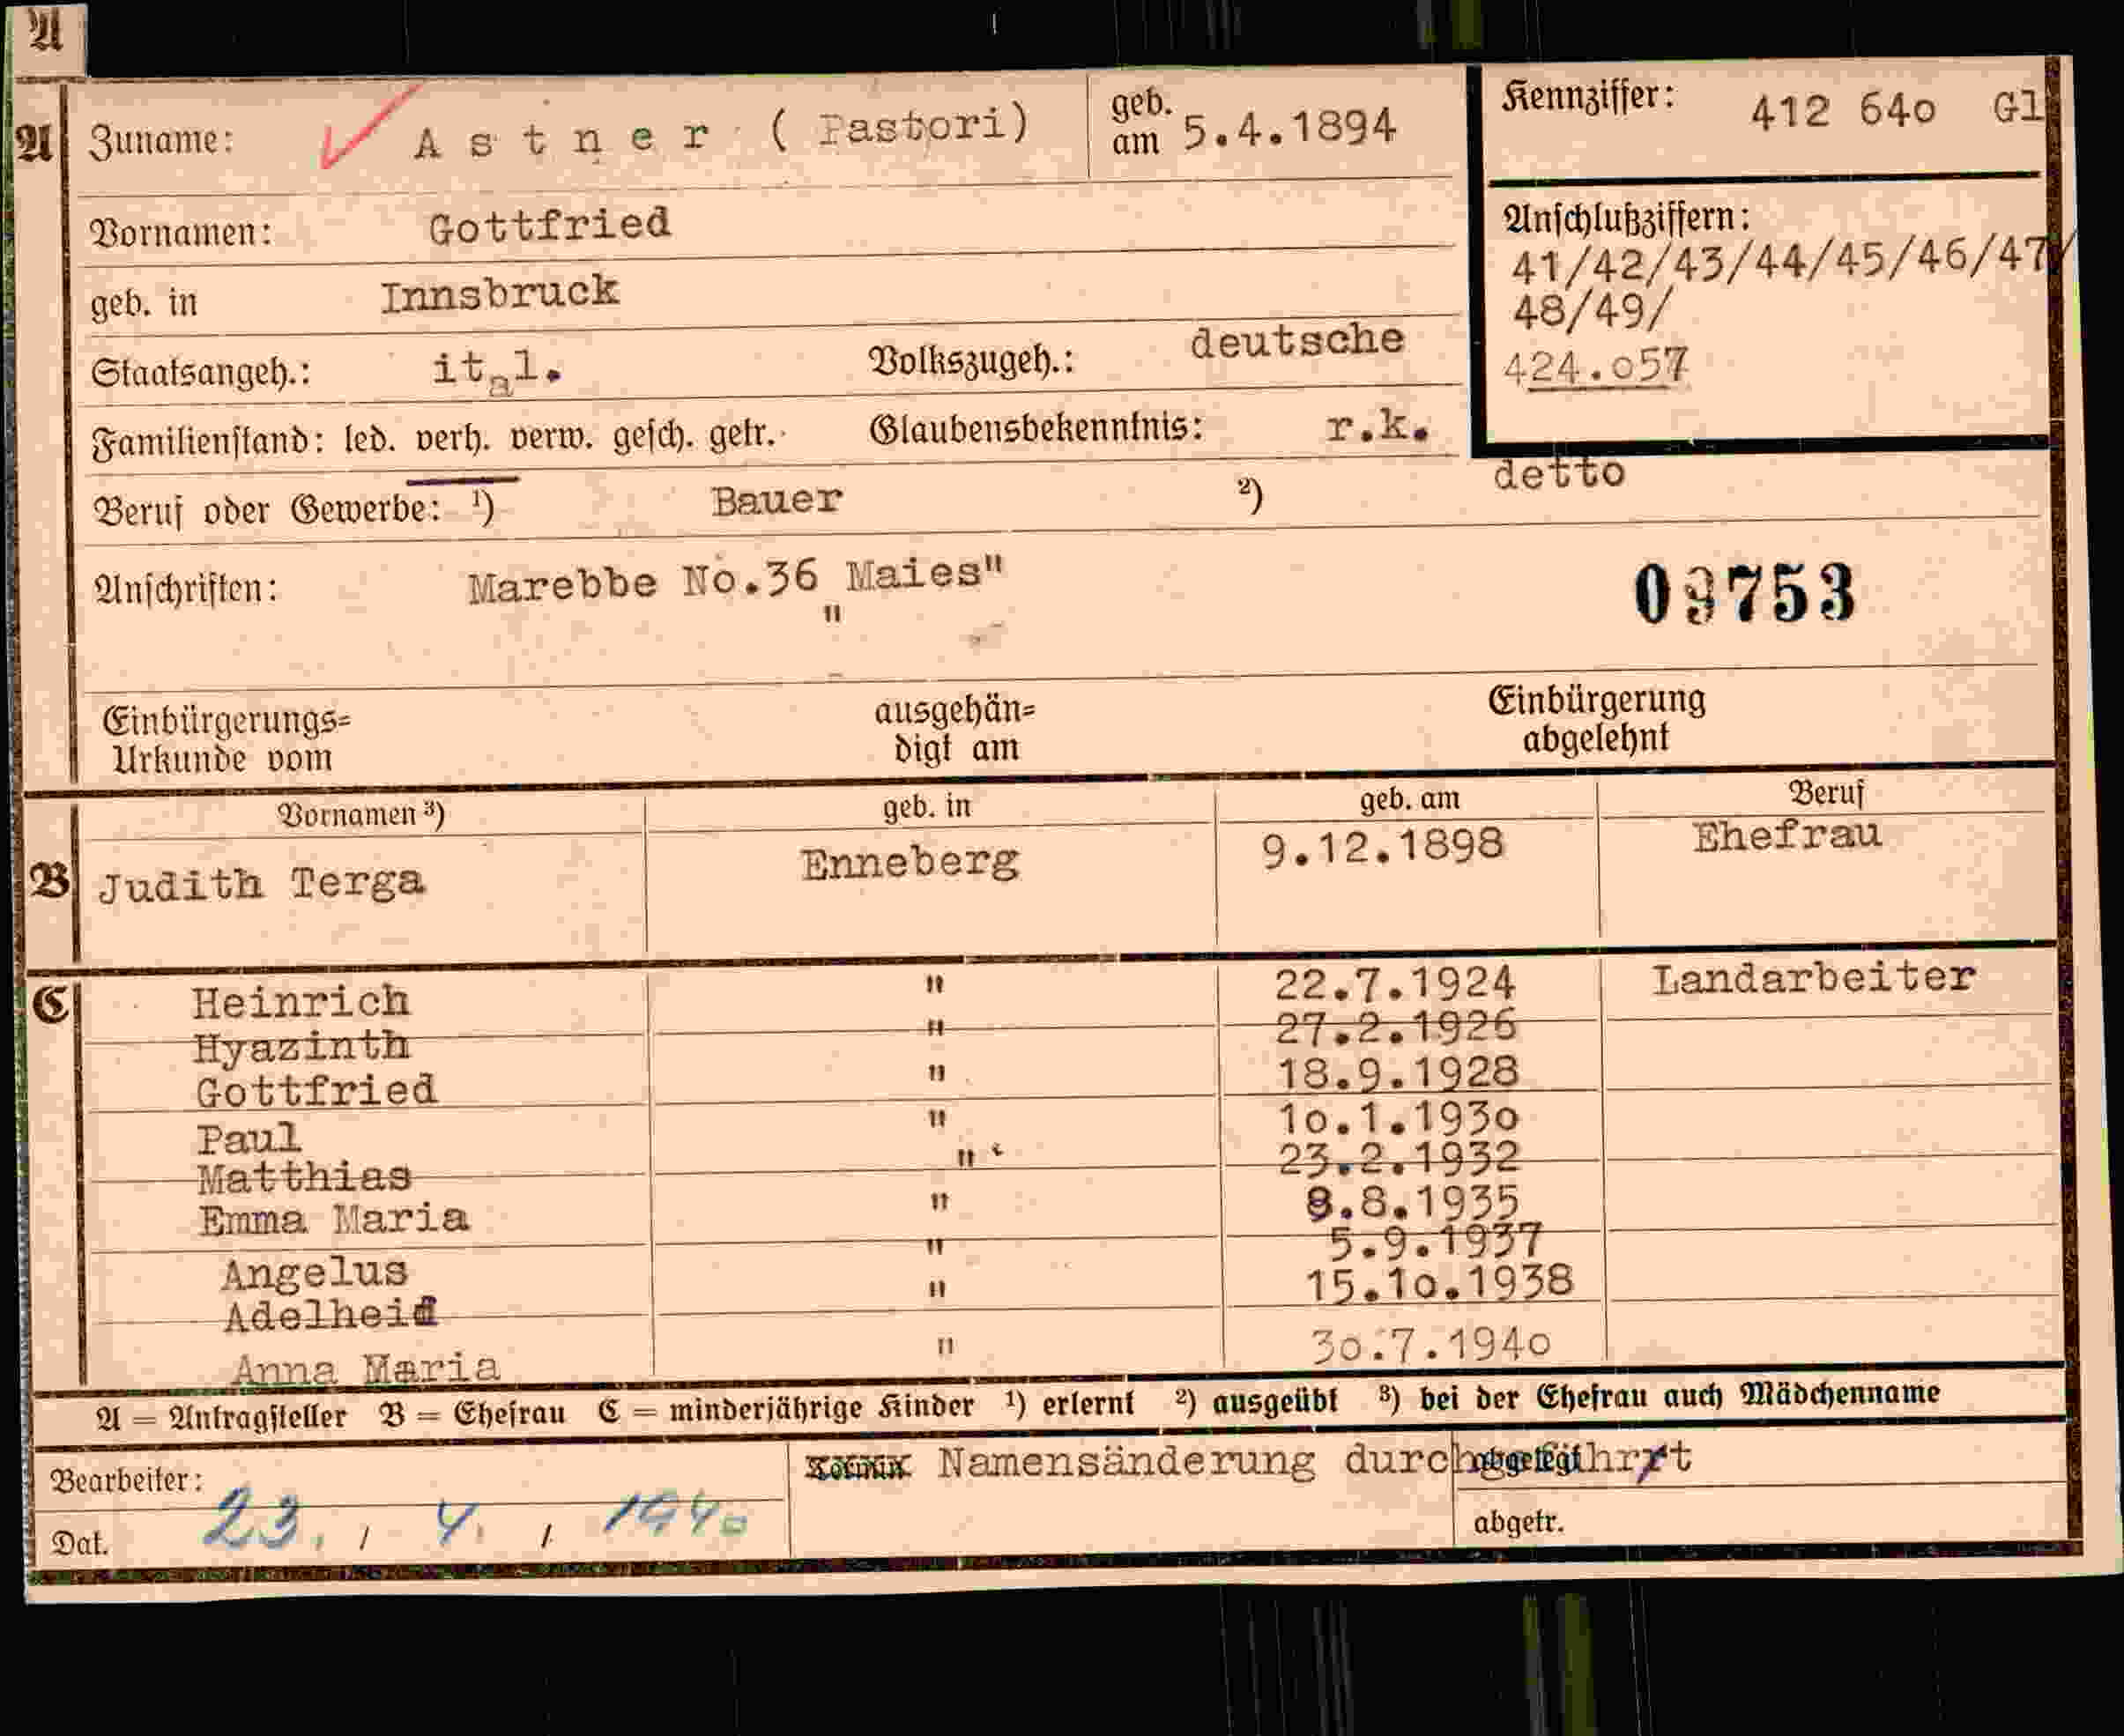 A
A Zuname: A s t n e r ( Pastori) geb. am 5.4.1894 Kennziffer: 412 64o Gl
Vornamen: Gottfried
Anschlußziffern:
41/42/43/44/45/46/47/
48/49/
424.o57
geb. in Innsbruck
Staatsangeh.: ital. Volkszugeh.: deutsche
Familienstand: led. verh. verw. gesch. getr. Glaubensbekenntnis: r.k.
Beruf oder Gewerbe: ¹) Bauer ²) detto
Anschriften: Marebbe No.36 "Maies"
09753
Einbürgerungs=
Urkunde vom
ausgehän=
digt am
Einbürgerung
abgelehnt
Vornamen ³) geb. in geb. am Beruf
B Judith Terga Enneberg 9.12.1898 Ehefrau
C Heinrich " 22.7.1924 Landarbeiter
Hyazinth " 27.2.1926
Gottfried " 18.9.1928
Paul " 1o.1.193o
Matthias " 23.2.1932
Emma Maria " 8.8.1935
Angelus " 5.9.1937
Adelheid " 15.1o.1938
Anna Maria " 3o.7.194o
A = Antragsteller B = Ehefrau C = minderjährige Kinder ¹) erlernt ²) ausgeübt ³) bei der Ehefrau auch Mädchenname
Bearbeiter:
Namensänderung durchgeführt
abgelegt
Dat. 23. / 4. / 1940
abgetr.